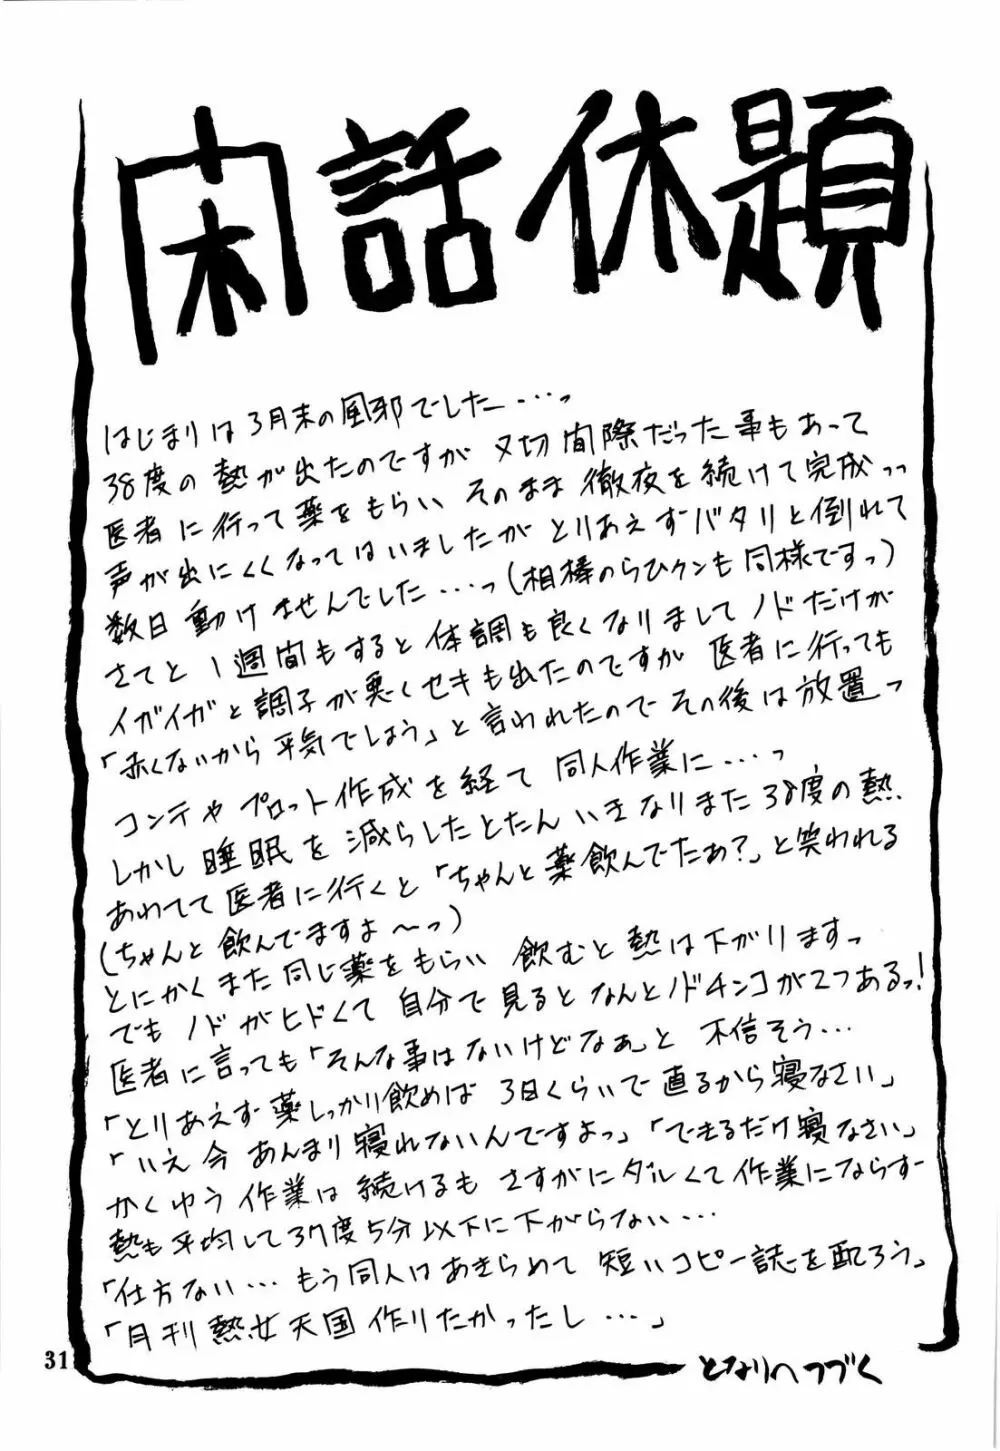 閑話休題
はじまりは3月末の風邪でした…っ
38度の熱が出たのですが〆切間際だった事もあって
医者に行って薬をもらい そのまま徹夜を続けて完成っっ
声が出にくくなってはいましたがとりあえずバタリと倒れて
数日動けませんでした…っ(相棒のらひクンも同様ですっ)
さてと1週間もすると体調も良くなりましてノドだけが
イガイガと調子が悪くセキも出たのですが 医者に行っても
「赤くないから平気でしょう」と言われたのでその後は放置っ
コンテやプロット作成を経て 同人作業に…っ
しかし睡眠を減らしたとたんいきなりまた38度の熱
あわてて医者に行くと「ちゃんと薬飲んでたぁ?」と笑われる
(ちゃんと飲んでますよ〜っ)
とにかくまた同じ薬をもらい 飲むと熱は下がりますっ
でもノドがヒドくて 自分で見るとなんとノドチンコが2つあるっ!
医者に言っても「そんな事はないけどなぁ」と 不信そう…
「とりあえず薬しっかり飲めば 3日くらいで直るから寝なさい」
「いえ今あんまり寝れないんですよっ」「できるだけ寝なさい」
かくゆう作業は続けるも さすがにダルくて作業にならず
熱も平均して37度5分以下に下がらない…
「仕方ない…もう同人はあきらめて 短いコピー誌を配ろう」
「月刊熱女天国作りたかったし…」
となりへつづく
31